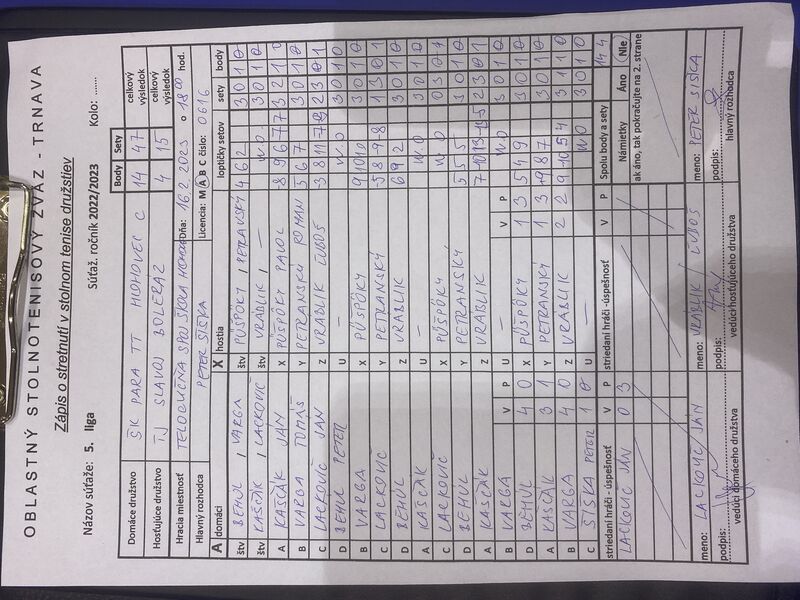 OBLASTNÝ STOLNOTENISOVÝ ZVÄZ - TRNAVA
Zápis o stretnutí v stolnom tenise družstiev
Názov súťaže: 5. liga Súťaž. ročník 2022/2023 Kolo: ......
Body Sety
Domáce družstvo ŠK PARA TT HLOHOVEC C 14 47 celkový výsledok
Hosťujúce družstvo TJ SLAVOJ BOLERÁZ 4 15 celkový výsledok
Hracia miestnosť TELOCVIČŇA SPOJ. ŠKOLA Dňa: 16.2. 2023 o 18 00 hod.
Hlavný rozhodca PETER ŠIŠKA Licencia: M A B C číslo: 0616
A domáci X hostia loptičky setov sety body
štv BEHÚL / VARGA štv PÜŠPÖKY / PETRANSKÝ 4 6 2 3 0 1 0
štv KAŠČÁK / LACKOVIČ štv VRÁBLIK / — w.o 3 0 1 0
A KAŠČÁK JÁN X PÜŠPÖKY PAVOL 3 2 1 0
B VARGA TOMÁŠ Y PETRANSKÝ ROMAN 5 6 7 3 0 1 0
C LACKOVIČ JÁN Z VRÁBLIK ĽUBOŠ 2 3 0 1
D BEHÚL PETER U — w.o 3 0 1 0
B VARGA X PÜŠPÖKY 3 0 1 0
C LACKOVIČ Y PETRANSKÝ 5 8 -9 -8 1 3 0 1
D BEHÚL Z VRÁBLIK 6 9 2 3 0 1 0
A KAŠČÁK U — w.o 3 0 1 0
C LACKOVIČ X PÜŠPÖKY w.o 0 3 0 1
D BEHÚL Y PETRANSKÝ 5 5 5 3 0 1 0
A KAŠČÁK Z VRÁBLIK 2 3 0 1
B VARGA U — w.o 3 0 1 0
D BEHÚL X PÜŠPÖKY 5 4 9 3 0 1 0
A KAŠČÁK Y PETRANSKÝ 9 8 7 3 0 1 0
B VARGA Z VRÁBLIK 3 1 1 0
C ŠIŠKA PETER U — w.o 3 0 1 0
V P V P
4 0 1 3
3 1 1 3
4 0 2 2
1 0
striedaní hráči - úspešnosť V P striedaní hráči - úspešnosť V P Spolu body a sety 14 4
LACKOVIČ JÁN 0 3 Námietky Áno Nie
ak áno, tak pokračujte na 2. strane
meno: LACKOVIČ JÁN meno: VRÁBLIK / ĽUBOŠ meno: PETER ŠIŠKA
podpis: podpis: podpis:
vedúci domáceho družstva vedúci hosťujúceho družstva hlavný rozhodca